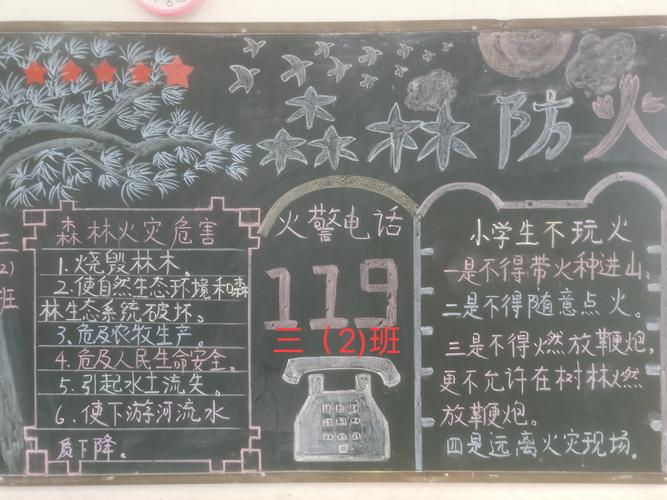 森林防火
三(2)班
森林火灾危害
1.烧毁林木。
2.使自然生态环境和森
林生态系统破坏。
3.危及农牧生产。
4.危及人民生命安全。
5.引起水土流失。
6.使下游河流水
质下降。
火警电话
119
三（2)班
小学生不玩火
一是不得带火种进山,
二是不得随意点火。
三是不得燃放鞭炮,
更不允许在树林燃
放鞭炮.
四是远离火灾现场.